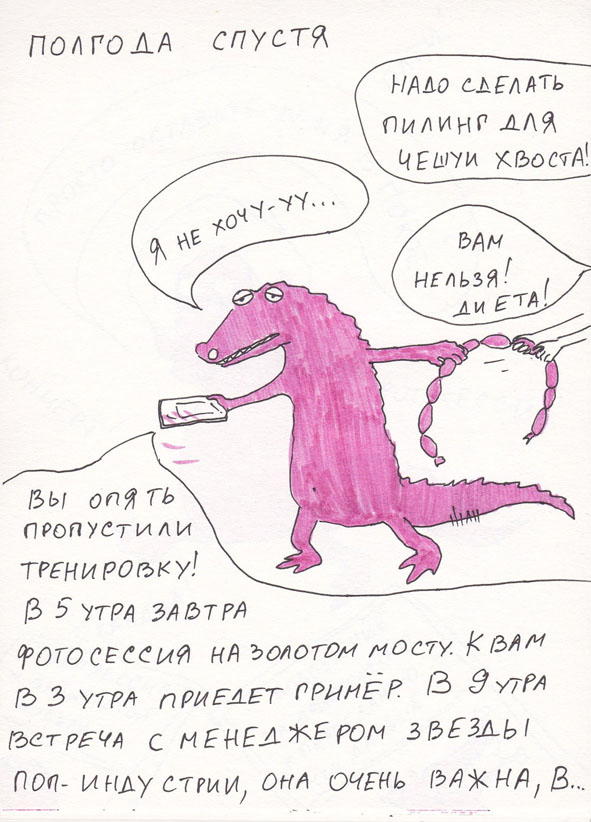 ПОЛГОДА СПУСТЯ
НАДО СДЕЛАТЬ
ПИЛИНГ ДЛЯ
ЧЕШУИ ХВОСТА!
Я НЕ ХОЧУ-УУ...
ВАМ
НЕЛЬЗЯ!
ДИЕТА!
ВЫ ОПЯТЬ
ПРОПУСТИЛИ
ТРЕНИРОВКУ!
В 5 УТРА ЗАВТРА
ФОТОСЕССИЯ НА ЗОЛОТОМ МОСТУ. К ВАМ
В 3 УТРА ПРИЕДЕТ ГРИМЁР. В 9 УТРА
ВСТРЕЧА С МЕНЕДЖЕРОМ ЗВЕЗДЫ
ПОП-ИНДУСТРИИ, ОНА ОЧЕНЬ ВАЖНА, В...